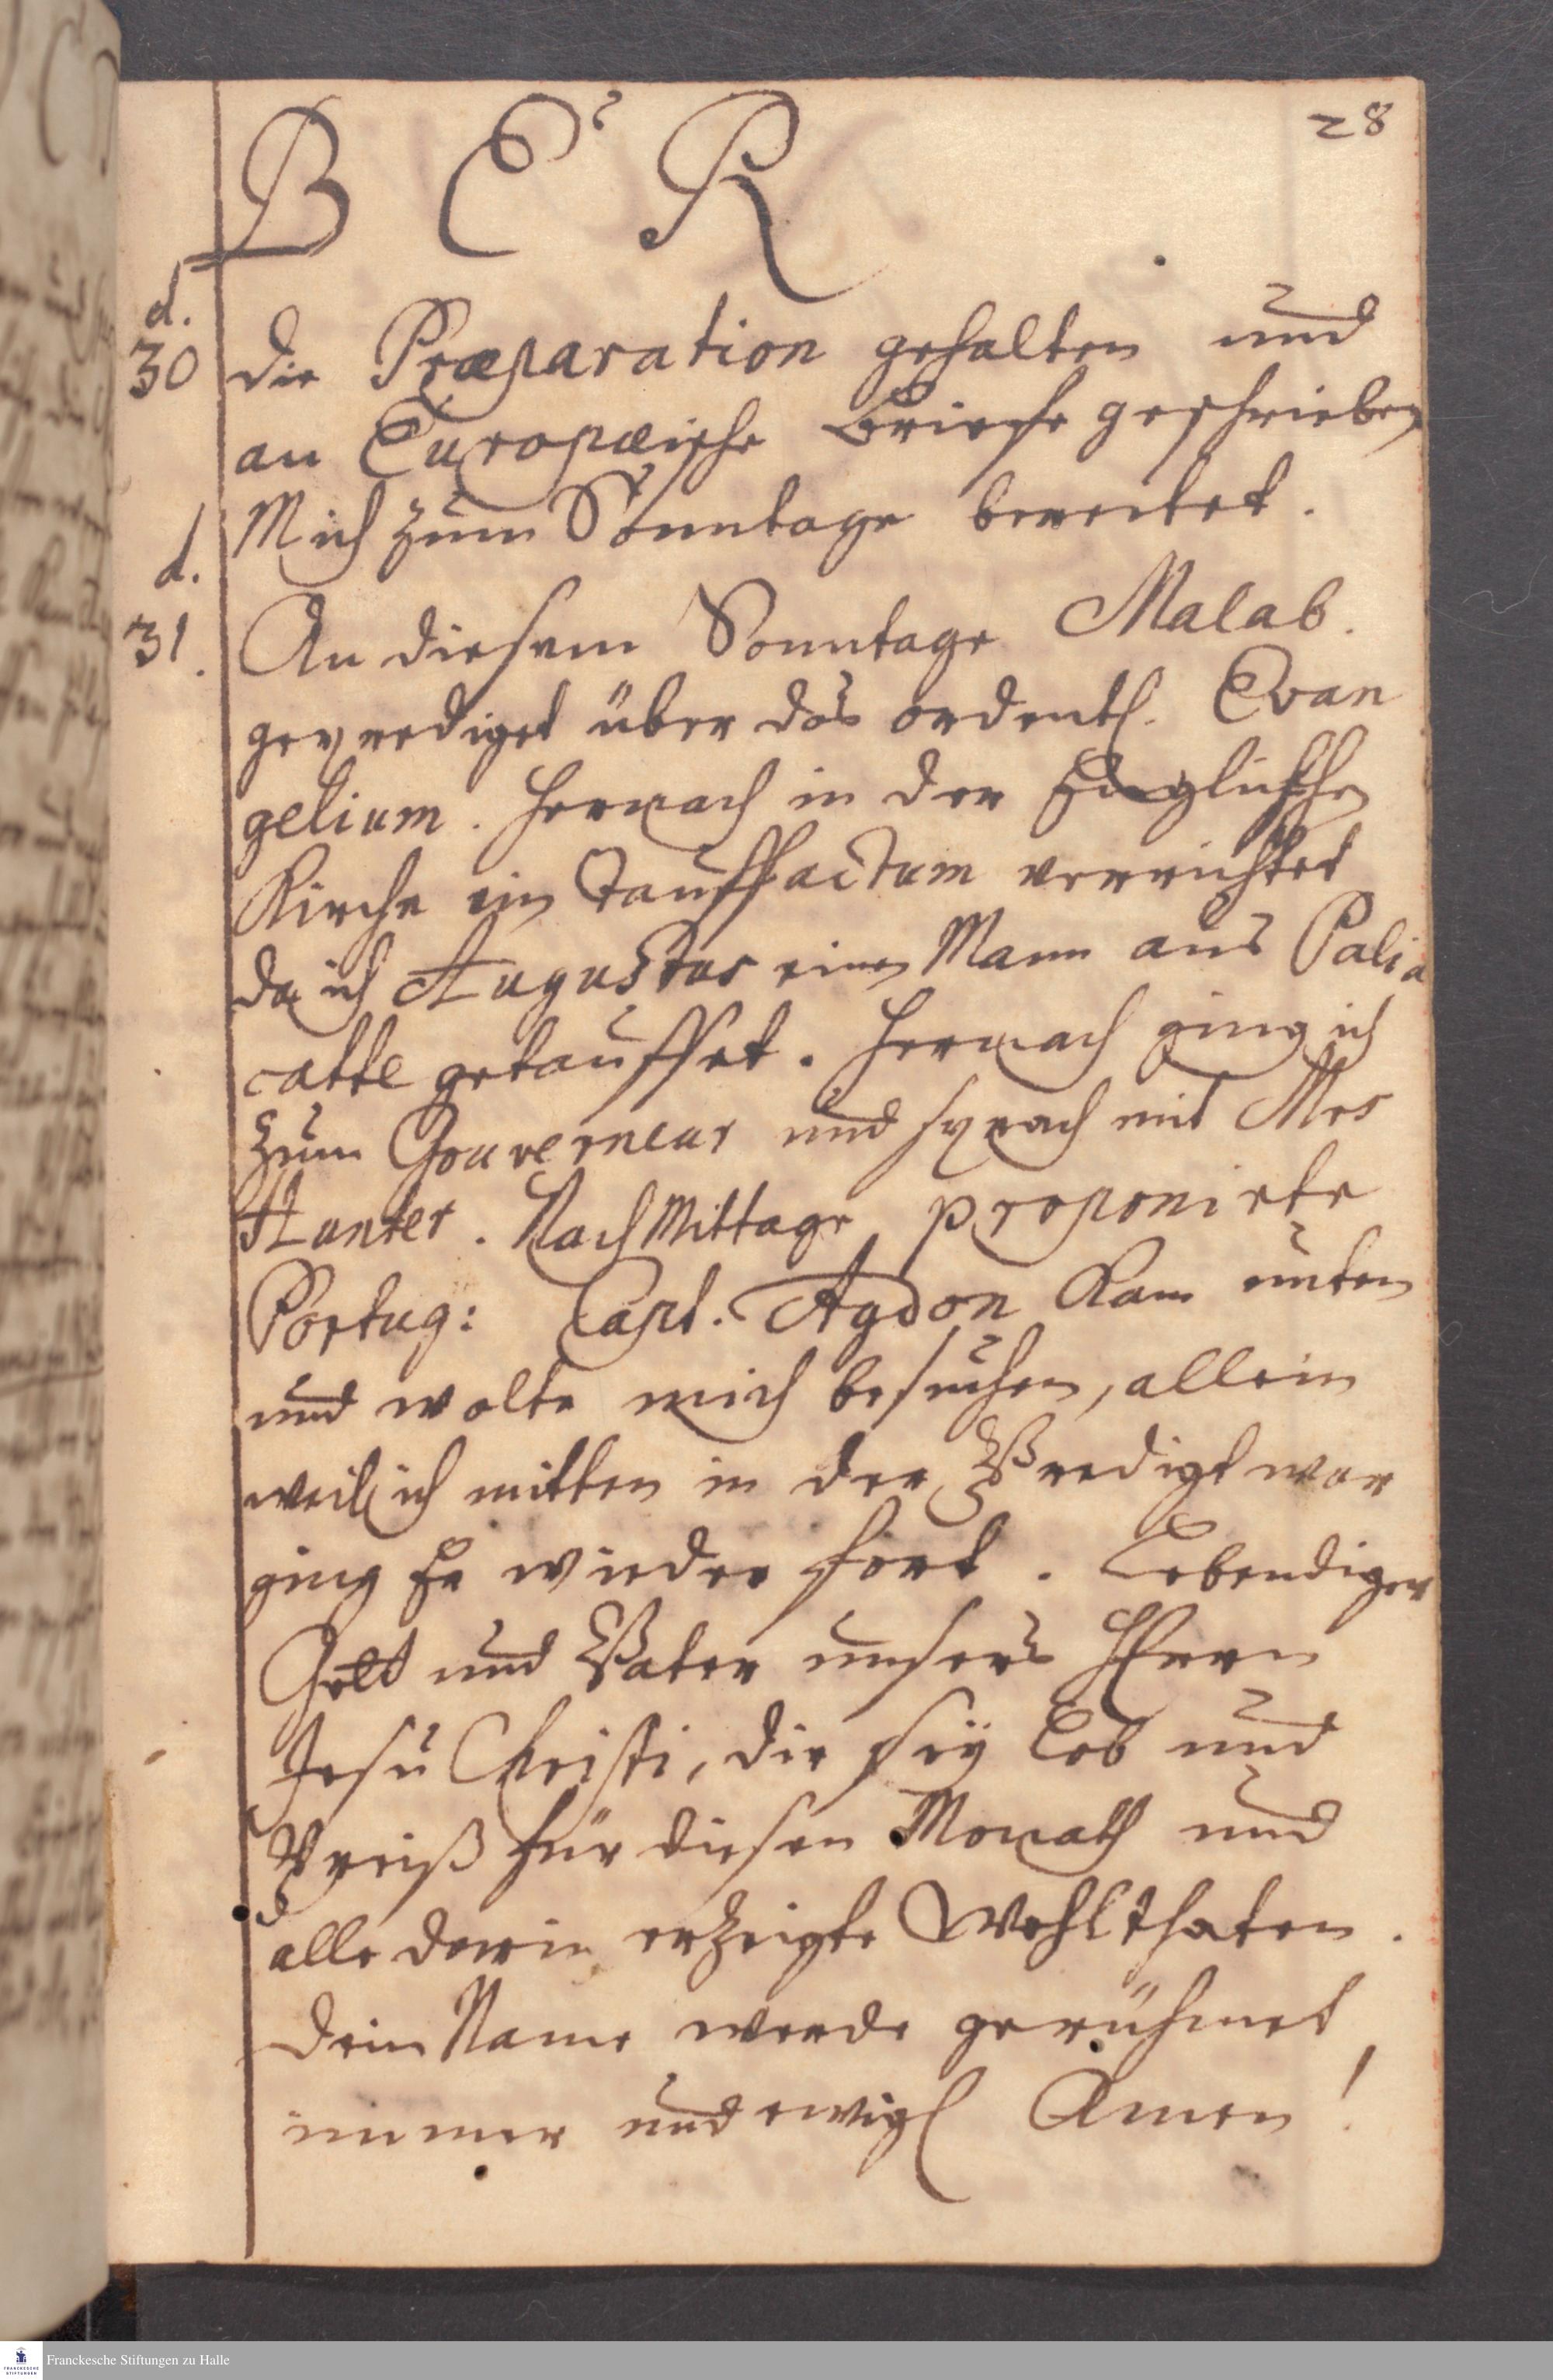 28
B E R
d.
30 die Præparation gehalten und
an Europæische Briefe geschrieben
Mich zum Sonntage bereitet.
d.
31. An diesem Sonntage Malab.
geprediget über das ordentl. Evan
gelium. Hernach in der Englischen
Kirche ein Tauffactum verrichtet
da ich Augustus einen Mann aus Palia
catte getauffet. Hernach ging ich
zum Gouverneur und sprach mit Mrs
Hunter. Nach Mittage proponirte
Portug: Capt. Agdon kam unten
und wolte mich besuchen, allein
weil ich mitten in der Predigt war
ging Er wieder fort. Lebendiger
Gott und Vater unsers HErrn
Jesu Christi, dir sey Lob und
Preiß für diesen Monath und
alle darin erzeigte Wohlthaten.
Dein Name werde gerühmet
immer und ewigl Amen!
FRANCKESCHE STIFTUNGEN
Franckesche Stiftungen zu Halle